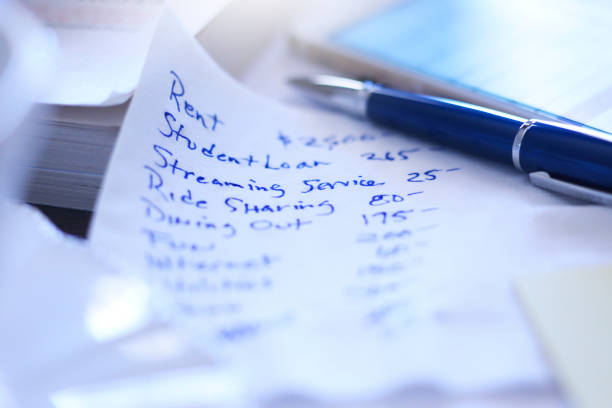 Rent
Student Loan 265-
Streaming Service 25-
Ride Sharing 80-
Dining Out 175-
Fun 200-
Internet